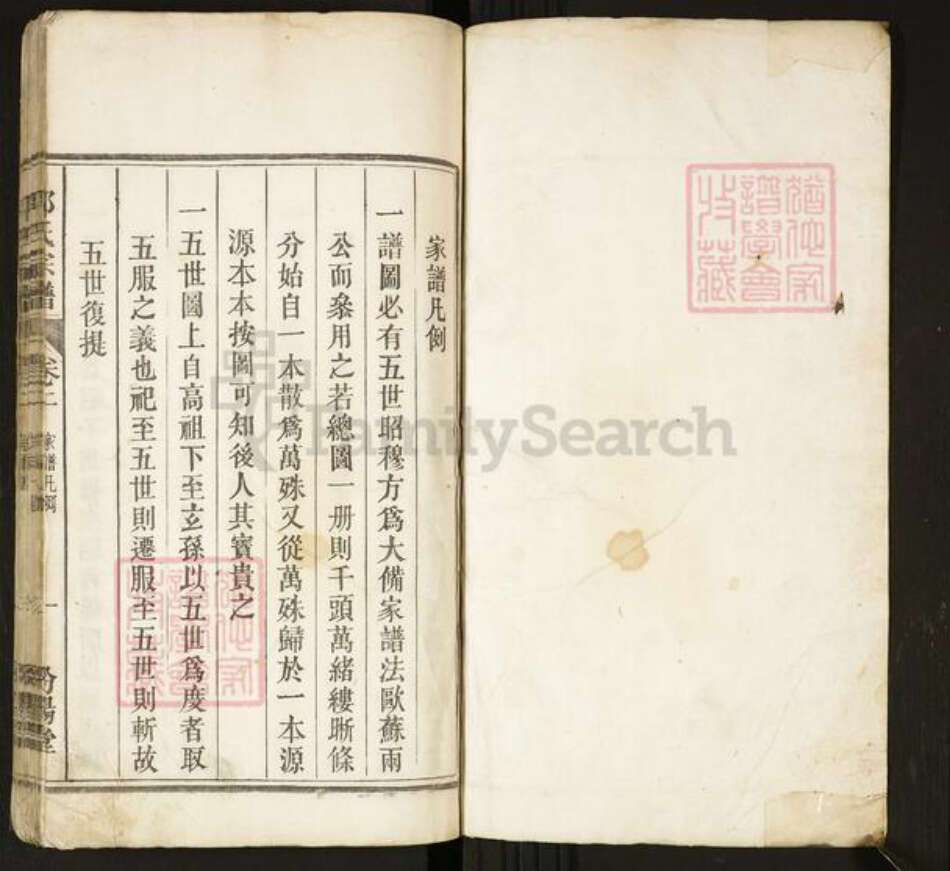 猶他家
譜學會
收藏
家譜凡例
一譜圖必有五世昭穆方爲大備家譜法歐蘇兩
公而叅用之若總圖一册則千頭萬緒縷晰條
分始自一本散爲萬殊又從萬殊歸於一本源
源本本按圖可知後人其寳貴之
一五世圖上自高祖下至玄孫以五世爲度者取
五服之義也祀至五世則遷服至五世則斬故
五世復提
氏宗譜 卷二 家譜凡例 一 汾陽堂
猶他家
譜學會
收藏
FamilySearch